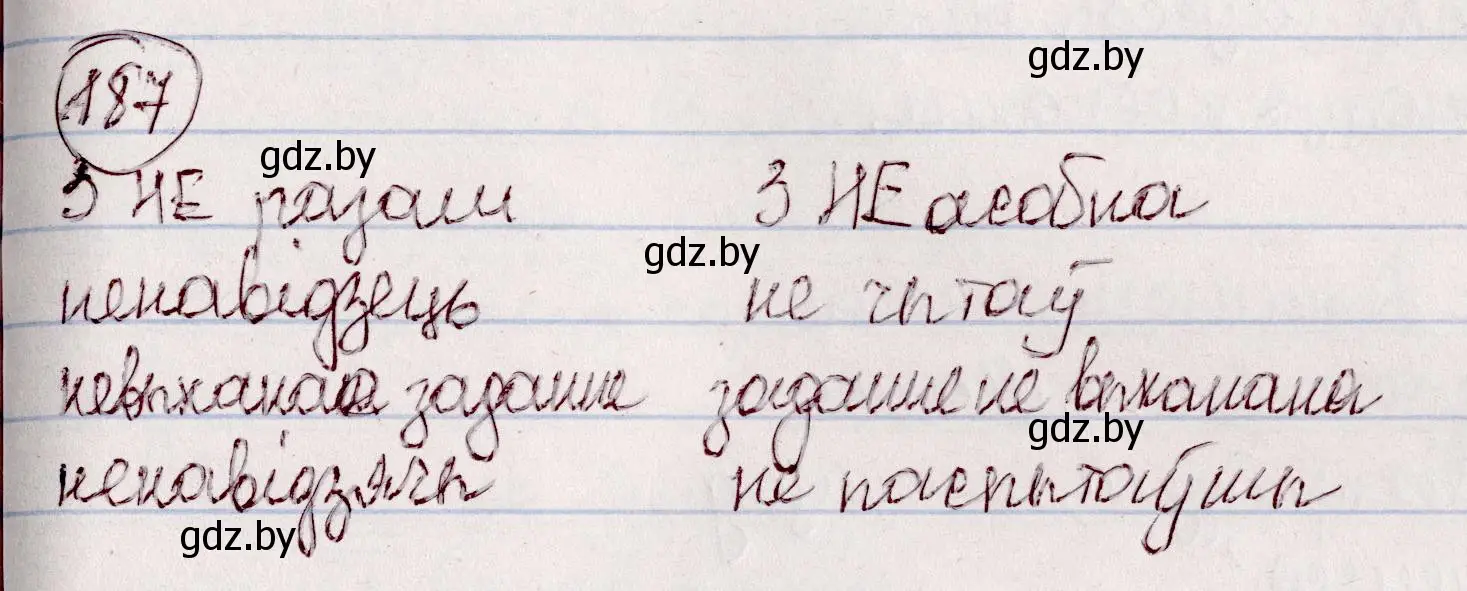 187
gdz.by
gdz.by
З НЕ разам З НЕ асобна
gdz.by
ненавідзець не чытаў
невыкананае заданне заданне не выканана
gdz.by
ненавідзячы не паспытаўшы
gdz.by